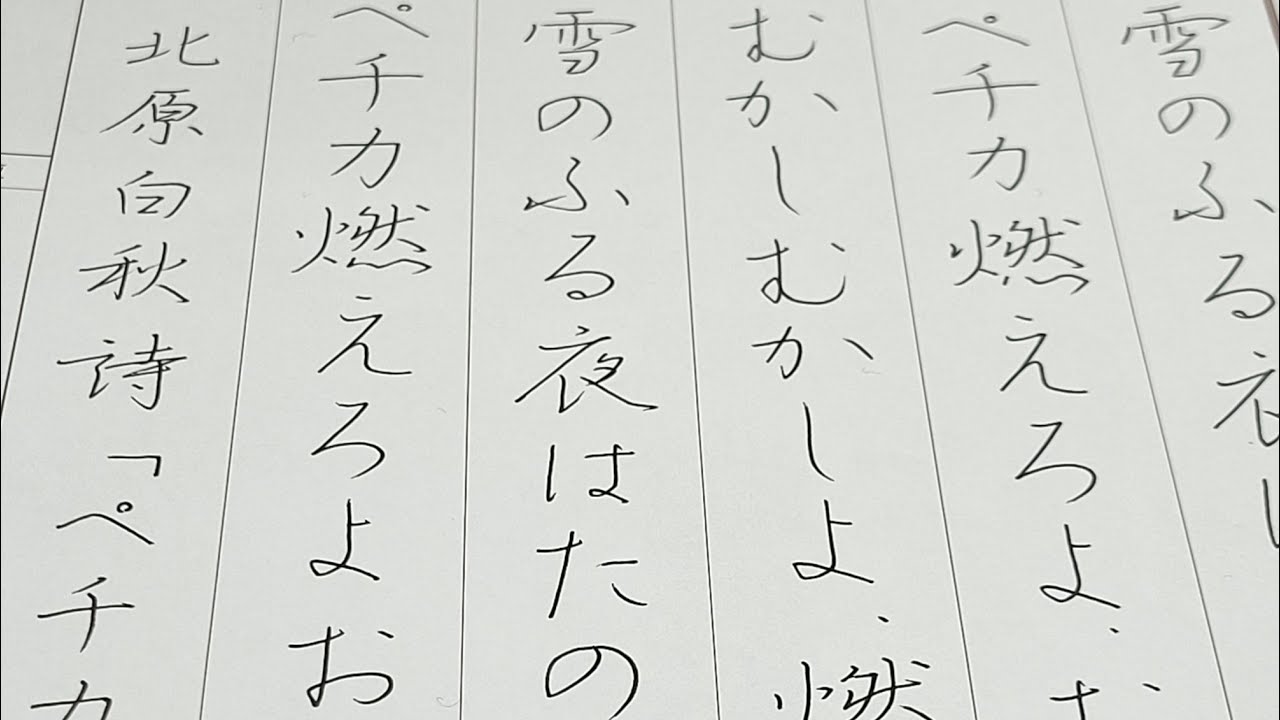 雪のふる夜
ペチカ燃えろよお
むかしむかしよ燃
雪のふる夜はたの
ペチカ燃えろよお
北原白秋詩「ペチカ